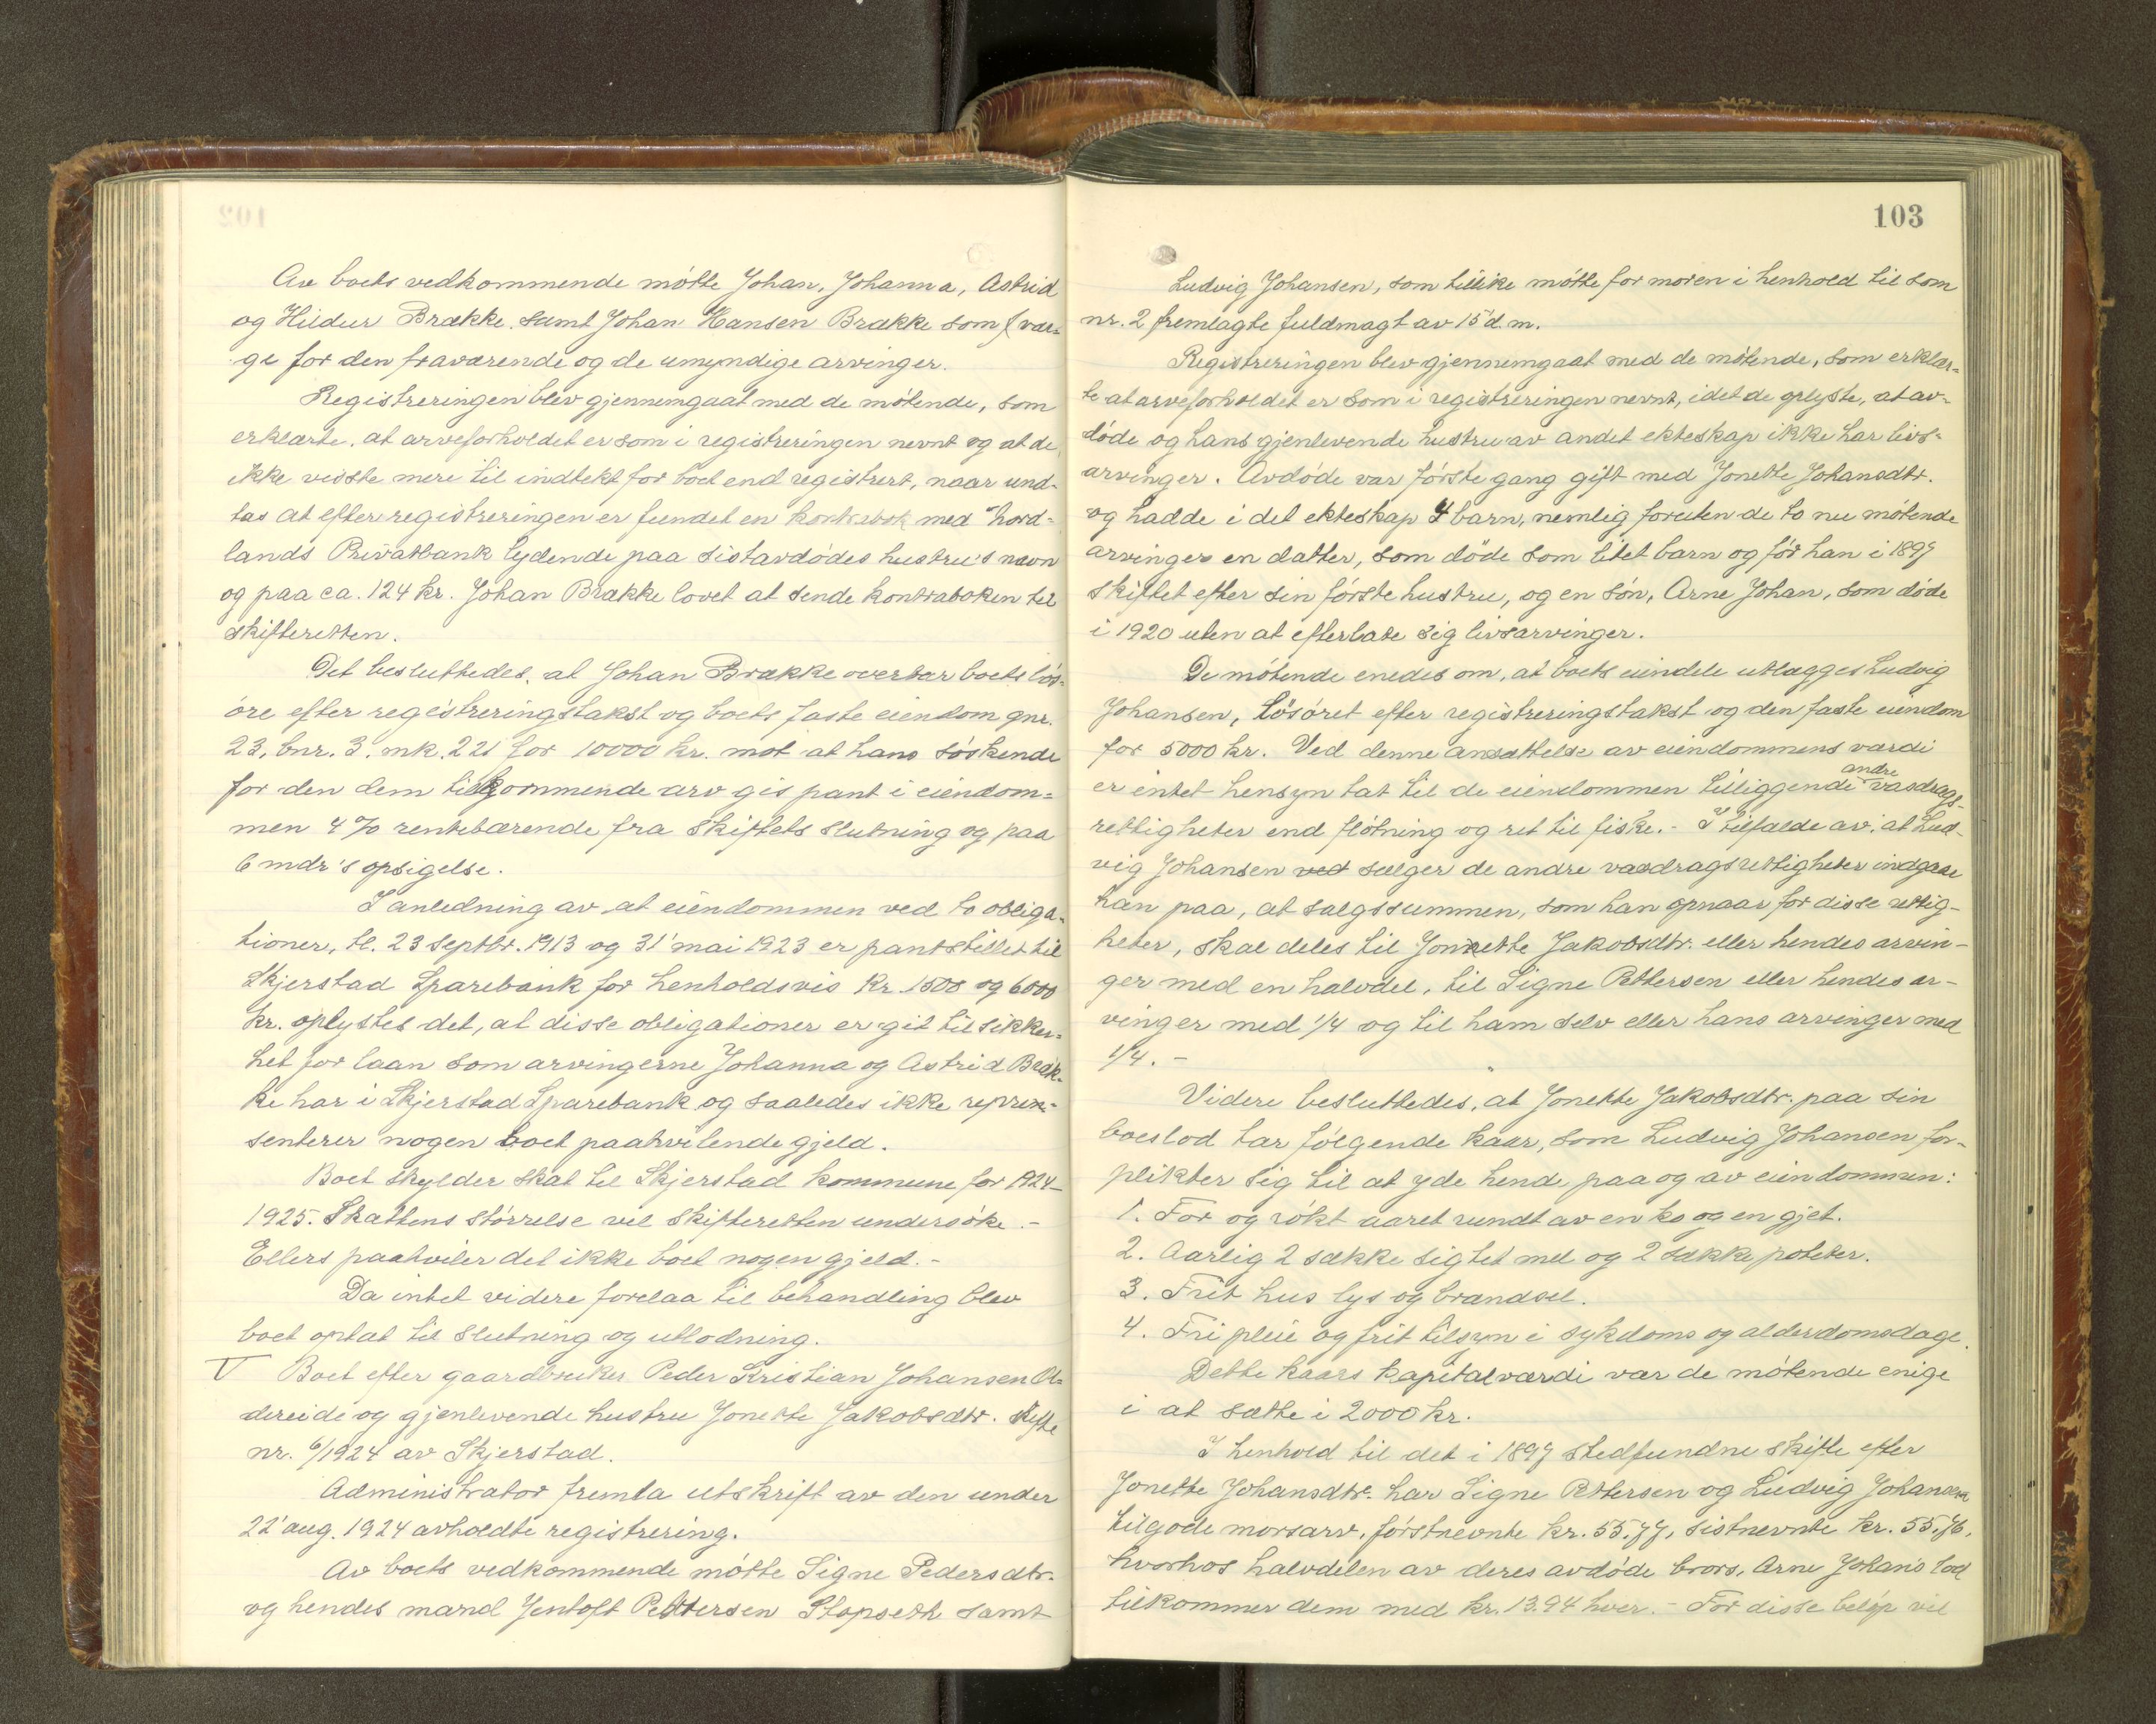 Av boets vedkommende møtte Johan, Johanna, Astrid
og Hildur Brække, samt Johan Hansen Brække som vær-
ge for den fraværende og de umyndige arvinger.
Registreringen blev gjennemgaat med de møtende, som
erklærte, at arveforholdet er som i registreringen nevnt og at de
ikke visste mere til indtekt for boet end registrert, naar und-
tas at efter registreringen er fundet en kontrabok med Nord-
lands Privatbank lydende paa sistavdødes hustru's navn
og paa ca. 124 kr. Johan Brække lovet at sende kontraboken til
skifteretten.
Det besluttedes, at Johan Brække overtar boets løs-
øre efter registreringstakst og boets faste eiendom gnr.
23, bnr. 3. mk. 2.21 for 10000 kr. mot at hans søskende
for den dem tilkommende arv gis pant i eiendom-
men 4% rentebærende fra skiftets slutning og paa
6 mdr's opsigelse.
I anledning av at eiendommen ved to obliga-
tioner, tl. 23 septbr. 1913 og 31' mai 1923 er pantstillet til
Skjerstad Sparebank for henholdsvis kr. 1500 og 6000
kr. oplystes det, at disse obligationer er git til sikker-
het for laan som arvingerne Johanna og Astrid Bræk-
ke har i Skjerstad Sparebank og saaledes ikke repræ-
senterer nogen boet paahvilende gjeld.
Boet skylder skat til Skjerstad kommune for 1924-
1925. Skattens størrelse vil skifteretten undersøke.-
Ellers paahviler det ikke boet nogen gjeld.-
Da intet videre forelaa til behandling blev
boet optat til slutning og utlodning.
V Boet efter gaardbruker Peder Kristian Johansen Al-
dereide og gjenlevende hustru Jonette Jakobsdtr. Skifte
nr. 6/1924 av Skjerstad.
Administrator fremla utskrift av den under
22' aug. 1924 avholdte registrering.
Av boets vedkommende møtte Signe Pedersdtr.
og hendes mand Jentoft Pettersen Støpseth samt
103
Ludvig Johansen, som tillike møtte for moren i henhold til som
nr. 2 fremlagte fuldmagt av 15' d.m.
Registreringen blev gjennemgaat med de møtende, som erklær-
te at arveforholdet er som i registreringen nevnt, idet de oplyste, at av-
døde og hans gjenlevende hustru av andet ekteskap ikke har livs-
arvinger. Avdøde var første gang gift med Jonette Johansdtr.
og hadde i det ekteskap 4 barn, nemlig foruten de to nu møtende
arvinger en datter, som døde som litet barn og før han i 1897
skiftet efter sin første hustru, og en søn, Arne Johan, som døde
i 1920 uten at efterlate sig livsarvinger.
De møtende enedes om, at boets eiendele utlægges Ludvig
Johansen, løsøret efter registreringstakst og den faste eiendom
for 5000 kr. Ved denne ansættelse av eiendommens værdi
er intet hensyn tat til de eiendommen tilliggende andre vasdrags-
rettigheter end fløtning og ret til fiske.- I tilfælde av, at Lud-
vig Johansen ved sælger de andre vasdragsrettigheter indgaar
han paa, at salgssummen, som han opnaar for disse rettig-
heter, skal deles til Jonette Jakobsdtr. eller hendes arvin-
ger med en halvdel, til Signe Pettersen eller hendes ar-
vinger med 1/4 og til ham selv eller hans arvinger med
1/4.-
Videre besluttedes, at Jonette Jakobsdtr. paa sin
boeslod tar følgende kaar, som Ludvig Johansen for-
plikter sig til at yde hende paa og av eiendommen:
1. For og røkt aaret rundt av en ko og en gjet.
2. Aarlig 2 sække sigtet mel og 2 sække poteter.
3. Frit hus lys og brændsel.
4. Fri pleie og frit tilsyn i sykdoms og alderdomsdage.
Dette kaars kapitalværdi var de møtende enige
i at sætte i 2000 kr.
I henhold til det i 1897 stedfundne skifte efter
Jonette Johansdtr. har Signe Pettersen og Ludvig Johansen
tilgode morsarv, førstnevnte kr. 55,77, sistnevnte kr. 55,76,
hvorhos halvdelen av deres avdøde brors, Arne Johans lod
tilkommer dem med kr. 13.94 hver.- For disse beløp vil